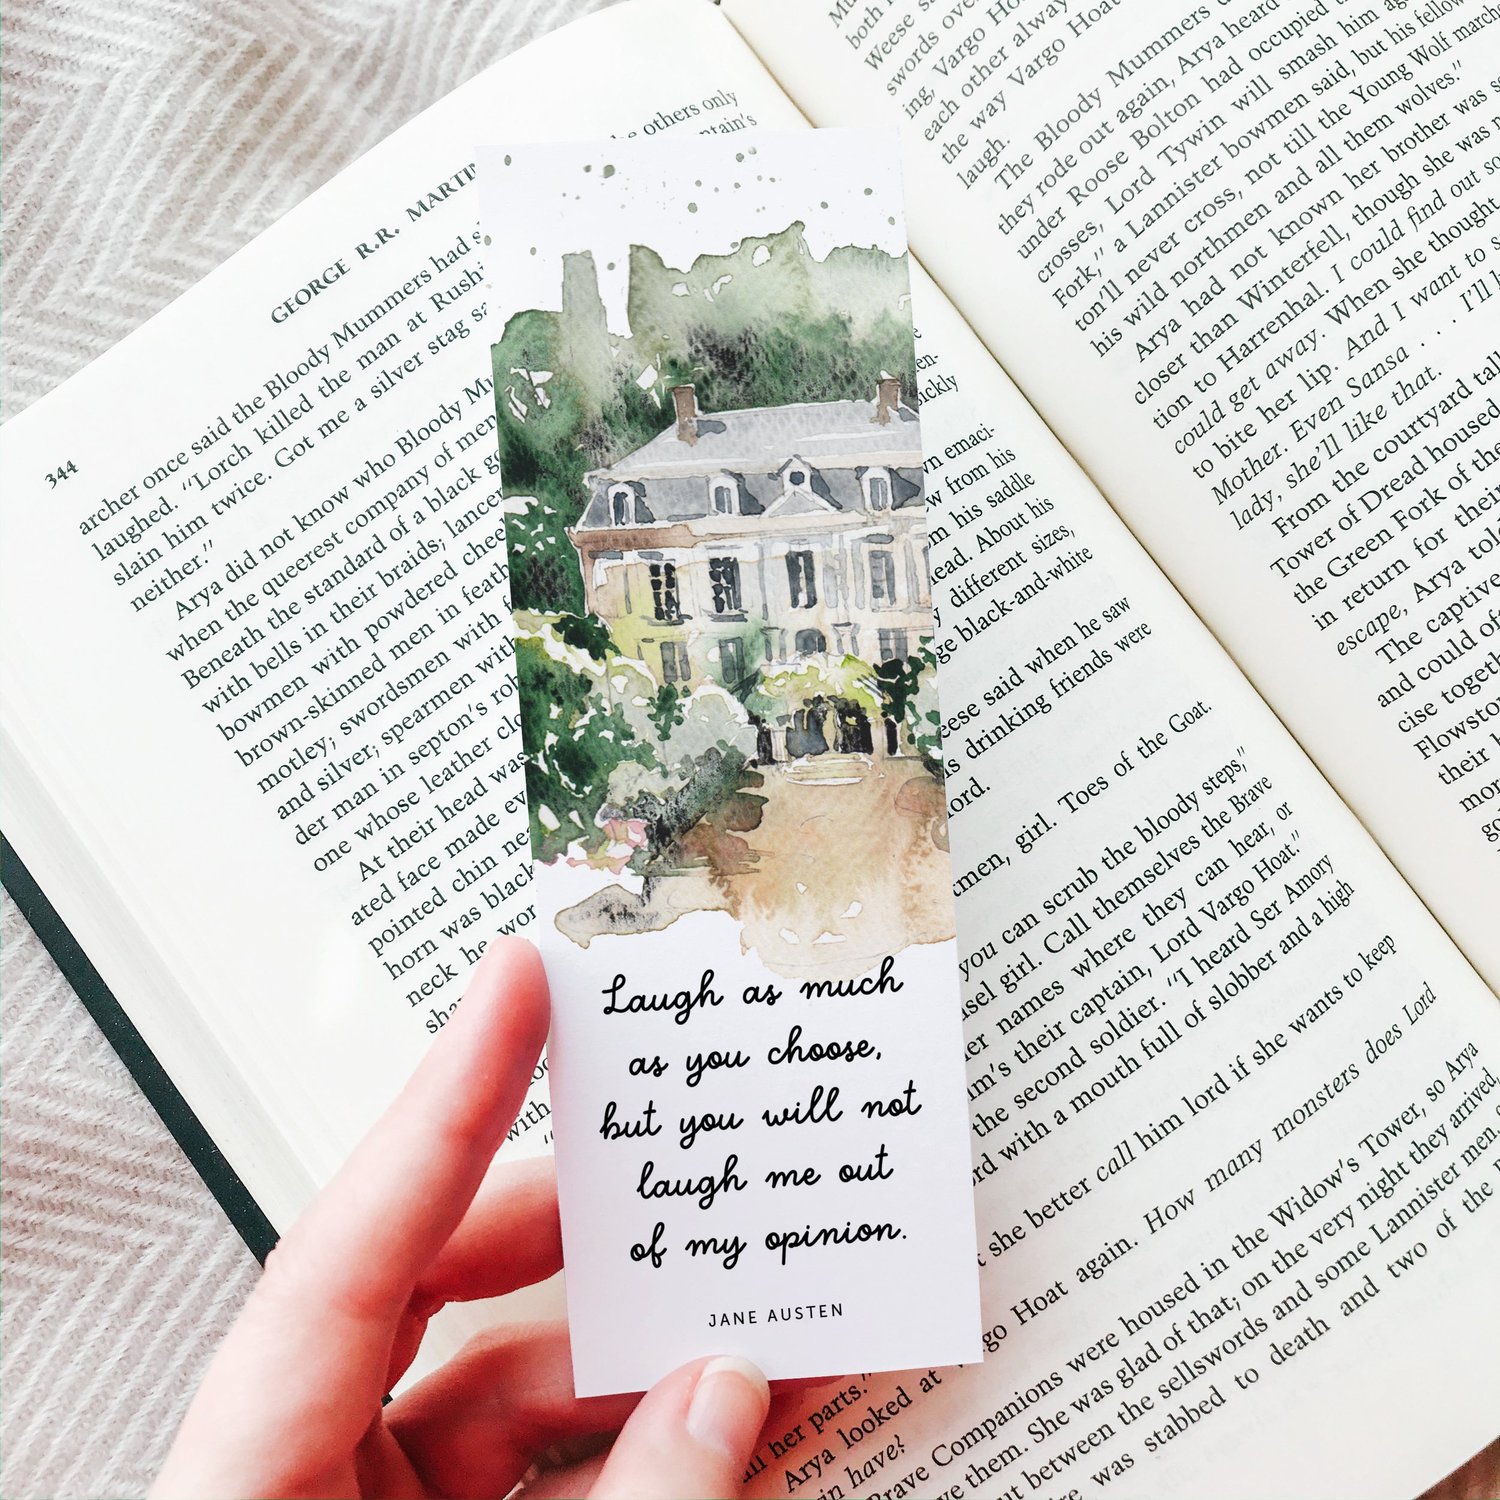 344
GEORGE R.R. MARTIN
the others only
archer once said the Bloody Mummers had
laughed. “Lorch killed the man at Rushi
slain him twice. Got me a silver stag
neither.”
Arya did not know who Bloody Mu
when the queerest company of men
Beneath the standard of a black
with bells in their braids; lancer
bowmen with powdered cheek
brown-skinned men in feath
motley; swordsmen with
and silver; spearmen with
der man in septon's
one whose leather
At their head was
ated face made
pointed chin
horn was black
neck he
with
sickly
wn emaci-
from his
his saddle
ead. About his
different sizes,
black-and-white
said when he saw
drinking friends were
ord.
girl. Toes of the Goat.
you can scrub the bloody steps,”
girl. Call themselves the Brave
names where they can hear, or
their captain, Lord Vargo Hoat.”
the second soldier. “I heard Ser Amory
with a mouth full of slobber and a high
she better call him lord if she wants to keep
all her parts.”
Arya looked at Vargo Hoat again. How many monsters does Lord
have?
Brave Companions were housed in the Widow's Tower, so Arya
them. She was glad of that; on the very night they arrived,
between the sellswords and some Lannister men.
was stabbed to death and two of the
Laugh as much
as you choose,
but you will not
laugh me out
of my opinion.
JANE AUSTEN
both
Weese
swords over
ing, Vargo
each other always
the way Vargo Hoat
laugh.
The Bloody Mummers
they rode out again, Arya heard
under Roose Bolton had occupied
crosses, Lord Tywin will smash him
Fork,” a Lannister bowmen said, but his fellow
ton'll never cross, not till the Young Wolf marche
his wild northmen and all them wolves.”
Arya had not known her brother was so
closer than Winterfell, though she was
tion to Harrenhal. I could find out
could get away. When she thought
to bite her lip. And I want to
Mother. Even Sansa . . . I'll
lady, she'll like that.
From the courtyard
Tower of Dread housed
the Green Fork of the
in return for their
escape, Arya
The captive
and could of
cise
Flowston
their